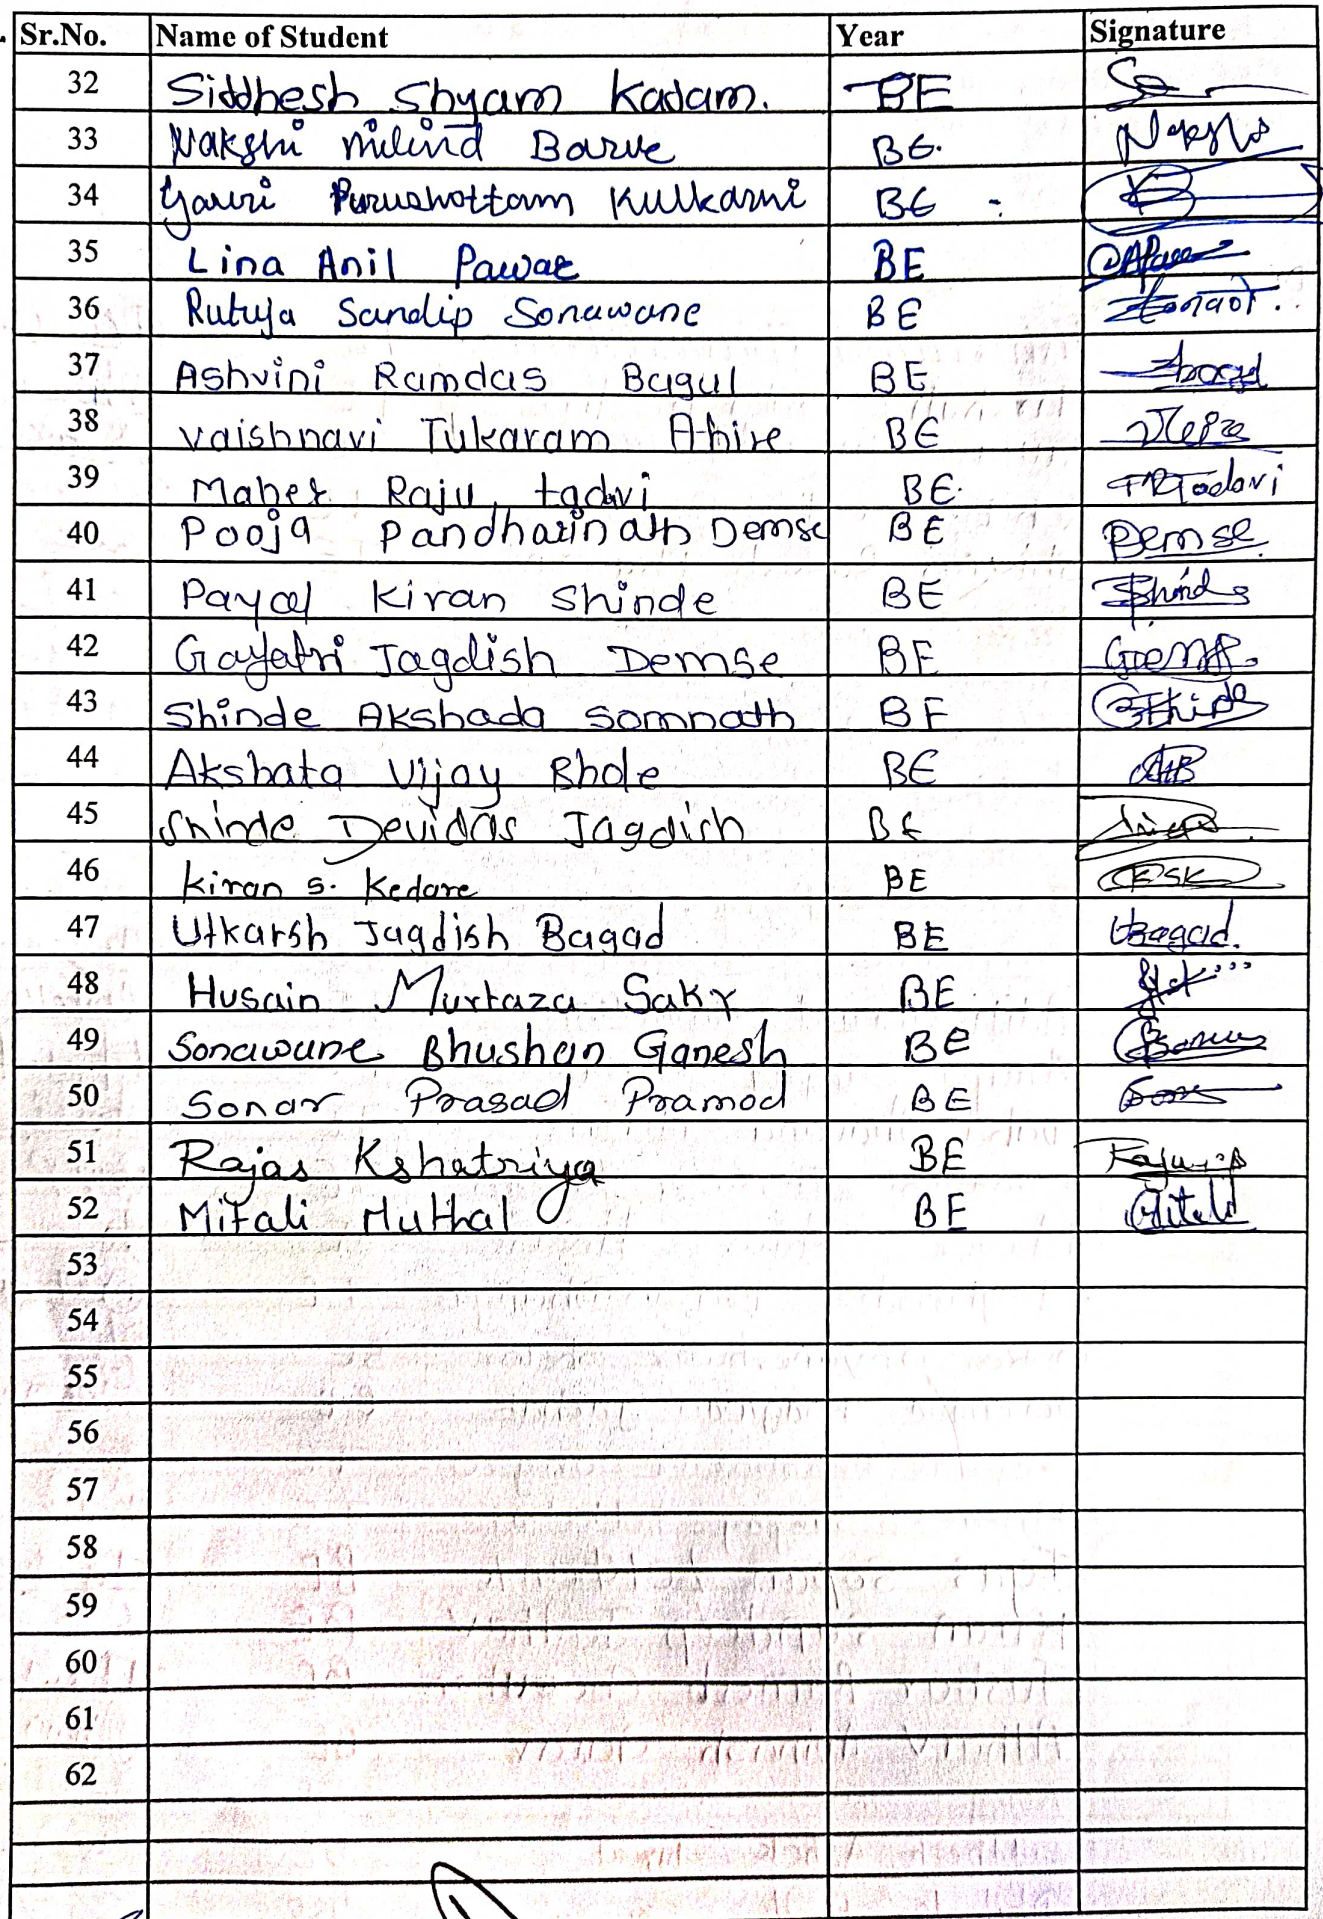 Sr.No. Name of Student Year Signature
32 Siddhesh Shyam Kadam. BE
33 Nakshi Milind Barve BE.
34 Gauri Purushottam Kulkarni BE
35 Lina Anil Pawar BE
36 Rutuja Sandip Sonawane BE
37 Ashvini Ramdas Bagul BE
38 Vaishnavi Tukaram Ahire BE
39 Maher Raju tadvi BE.
40 Pooja Pandharinath Demse BE Demse.
41 Payal Kiran Shinde BE Shinde
42 Gayatri Jagdish Demse BE
43 Shinde Akshada Somnath BE
44 Akshata Vijay Bhole BE
45 Shinde Devidas Jagdish BE
46 Kiran S. Kedare BE
47 Utkarsh Jagdish Bagad BE Ubagad.
48 Husain Murtaza Saky BE
49 Sonawane Bhushan Ganesh BE
50 Sonar Prasad Pramod BE
51 Rajas Kshatriya BE
52 Mitali Muthal BE Mitali
53
54
55
56
57
58
59
60
61
62